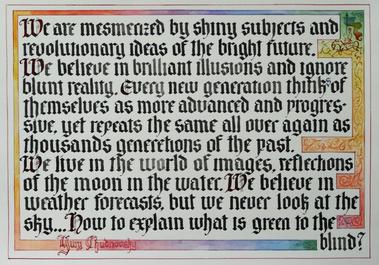 We are mesmerized by shiny subjects and
revolutionary ideas of the bright future.
We believe in brilliant illusions and ignore
blunt reality. Every new generation thinks of
themselves as more advanced and progres-
sive, yet repeats the same all over again as
thousands generetions of the past.
We live in the world of images, reflections
of the moon in the water. We believe in
weather forecasts, but we never look at the
sky...How to explain what is green to the
blind?
Yury Chudnovsky